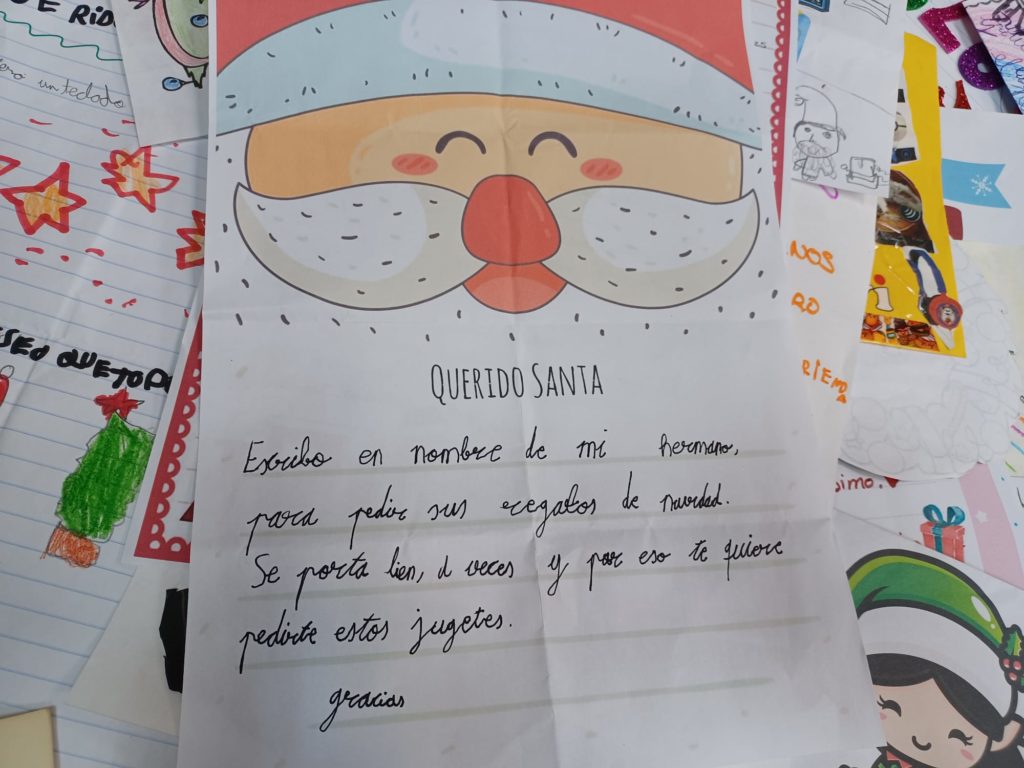 QUERIDO SANTA
Escribo en nombre de mi hermano,
para pedir sus regalos de navidad.
Se porta bien, a veces y por eso te quiere
pedirte estos jugetes.
gracias
E RID
un teclado
SEO QUE TODO
NOS
RO
RIEMDA
simo.